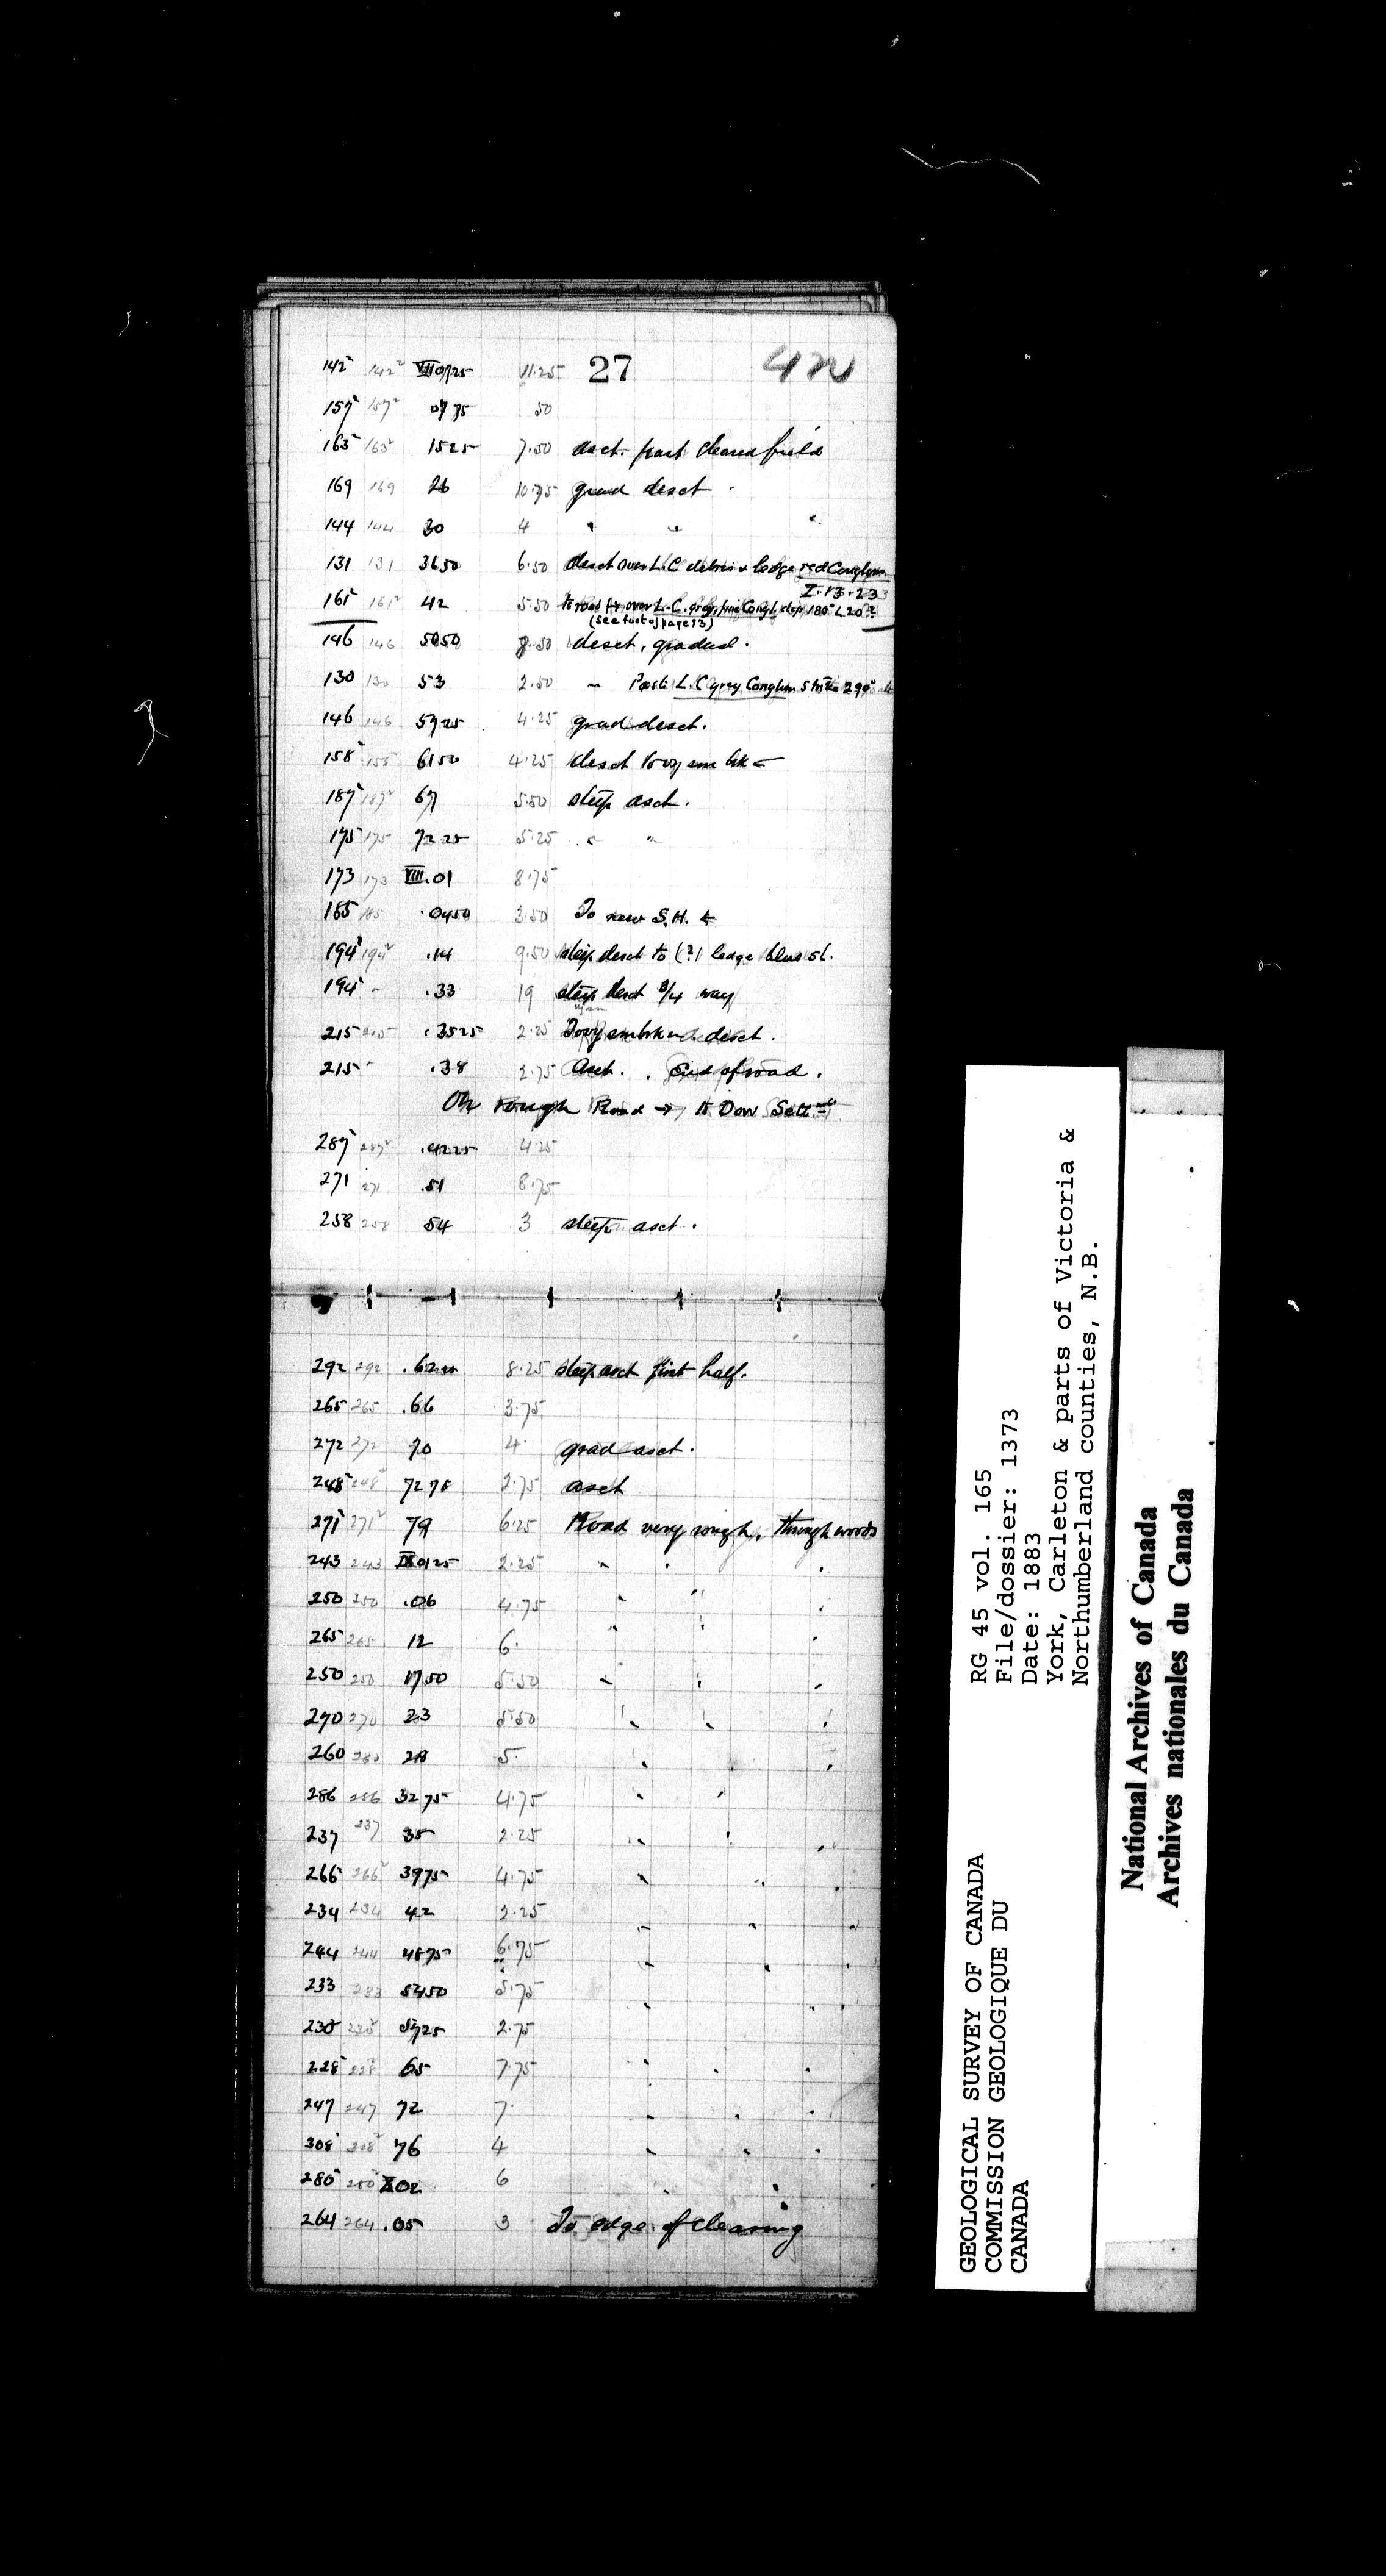 27 422
142⁵ 142² VII 0725 11.25
157⁵ 157² 0775 50
165 165² 1525 7.50 asct. past cleared field
169 169 26 10.75 grad desct
144 144 30 4 " " "
131 131 3650 6.50 desct over L.C debris & ledge red Conglom
I.13.23
161⁵ 161² 42 5.50 to road over L.C. gray, fine Congl. dip 180° L 20°?
(see foot of page 13)
146 146 5050 8.50 desct, gradual.
130 130 53 2.50 " Past L.C grey Conglom strike 290°
146 146 5725 4.25 grad desct.
158⁵ 158² 6150 4.25 desct to vy sm bk ←
187⁵ 187² 67 5.50 steep asct.
175 175 7225 5.25 " "
173 173 VIII.01 8.75
185 185 .0450 3.50 To new S.H. ←
194⁵ 194² .14 9.50 steep desct to (?) ledge blue sl.
194⁵ " .33 19 steep desct 3/4 way
215 215 .3525 2.25 To vy sm bk desct.
215 " .38 2.75 Asct. . End of road.
On rough Road → to Dow Settmt
287⁵ 287² .4225 4.25
271 271 .51 8.75
258 258 54 3 steep asct.
292 292 .6225 8.25 steep asct first half.
265 265 .66 3.75
272 272 70 4 grad asct.
248⁵ 248² 7275 2.75 asct
271⁵ 271² 79 6.25 Road very rough, through woods
243 243 IX 0125 2.25 " " "
250 250 .06 4.75 " " "
265 265 12 6. " " "
250 250 1750 5.50 " " "
270 270 23 5.50 " " "
260 260 28 5. " " "
286 286 3275 4.75 " "
237 237 35 2.25 " " "
266⁵ 266² 3975 4.75 " " "
234 234 42 2.25 " " "
244 244 4875 6.75 " " "
233 233 5450 5.75 " " "
230 5725 2.75
228⁵ 228² 65 7.75 " " "
247 247 72 7. " " "
308⁵ 308² 76 4 " " "
280⁵ 280² X 02 6 "
264 264 .05 3 To edge of clearing
RG 45 vol. 165
File/dossier: 1373
Date: 1883
York, Carleton & parts of Victoria &
Northumberland counties, N.B.
GEOLOGICAL SURVEY OF CANADA
COMMISSION GEOLOGIQUE DU
CANADA
National Archives of Canada
Archives nationales du Canada